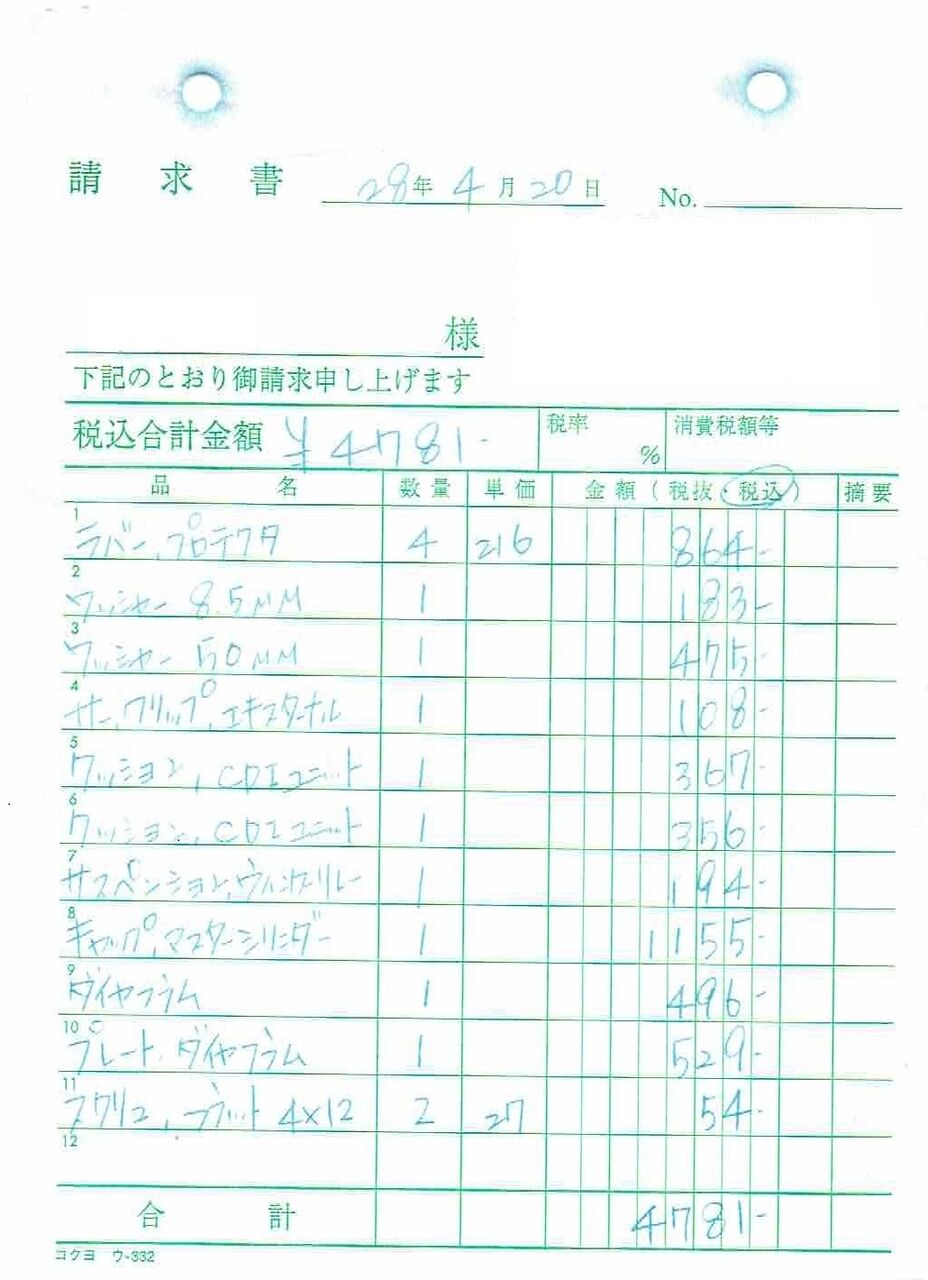 請求書 28年4月20日 No.
様
下記のとおり御請求申し上げます
税込合計金額 ¥4781- 税率 % 消費税額等
品名 数量 単価 金額(税抜・税込) 摘要
1 ラバー,プロテクタ 4 216 864-
2 ワッシャー 8.5MM 1 183-
3 ワッシャー 50MM 1 475-
4 サークリップ,エキスターナル 1 108-
5 クッション,CDIユニット 1 367-
6 クッション,CDIユニット 1 356-
7 サスペンション,ウィンカーリレー 1 194-
8 キャップ,マスターシリンダー 1 1155-
9 ダイヤフラム 1 496-
10 プレート,ダイヤフラム 1 529-
11 スクリュ,フラット 4×12 2 27 54-
12
合計 4781-
コクヨ ウ-332